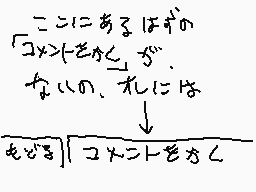 ここにあるはずの
「コメントをかく」が、
ないの、オレには
もどる コメントをかく